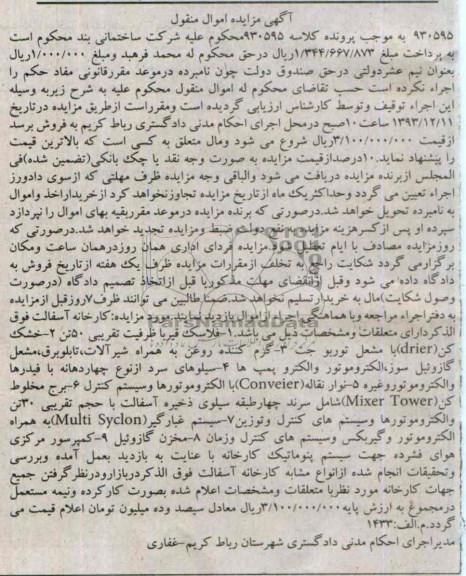 آگهی مزایده اموال منقول
۹۳۰۵۹۵ به موجب پرونده کلاسه ۹۳۰۵۹۵محکوم علیه شرکت ساختمانی بند محکوم است
به پرداخت مبلغ ۱/۳۴۴/۶۶۷/۸۷۳ریال درحق محکوم له محمد فرهبد ومبلغ ۱/۰۰۰/۰۰۰ریال
بعنوان نیم عشردولتی درحق صندوق دولت چون نامبرده درموعد مقررقانونی مفاد حکم را
اجراء نکرده است حسب تقاضای محکوم له اموال منقول محکوم علیه به شرح زیربه وسیله
این اجراء توقیف وتوسط کارشناس ارزیابی گردیده است ومقرراست ازطریق مزایده درتاریخ
۱۳۹۳/۱۲/۱۱ ساعت ۱۰صبح درمحل اجرای احکام مدنی دادگستری رباط کریم به فروش برسد
ازقیمت ۳/۱۰۰/۰۰۰/۰۰۰ریال شروع می شود ومال متعلق به کسی است که بالاترین قیمت
را پیشنهاد نماید.۱۰درصدازقیمت مزایده به صورت وجه نقد یا چک بانکی(تضمین شده)فی
المجلس ازبرنده مزایده دریافت می شود والباقی وجه مزایده ظرف مهلتی که ازسوی دادورز
اجراء تعیین می گردد وحداکثریک ماه ازتاریخ مزایده تجاوزنخواهد کرد ازخریداراخذ واموال
به نامبرده تحویل خواهد شد.درصورتی که برنده مزایده درموعد مقرربقیه بهای اموال را نپردازد
سپرده او پس ازکسرهزینه مزایده به نفع دولت ضبط ومزایده تجدید خواهد شد.درصورتی که
روزمزایده مصادف با ایام تعطیل گردد.مزایده فردای اداری همان روزدرهمان ساعت ومکان
برگزارمی گردد شکایت راجع به تخلف ازمقررات مزایده ظرف یک هفته ازتاریخ فروش به
دادگاه داده می شود وقبل ازانقضای مهلت مذکوریا قبل ازاتخاذ تصمیم دادگاه (درصورت
وصول شکایت)مال به خریدارتسلیم نخواهد شد.ضمنا طالبین می توانند ظرف۷روزقبل ازمزایده
به دفتراجراء مراجعه وبا هماهنگی اجراء ازاموال بازدید نمایند.مورد مزایده:کارخانه آسفالت فوق
الذکردارای متعلقات ومشخصات ذیل می باشد.۱-فلاسک قیربا ظرفیت تقریبی ۵۰تن ۲-خشک
کن(drier)با مشعل توربو جت ۳-گرم کننده روغن به همراه شیرآلات،تابلوبرق،مشعل
گازوئیل سوز،الکتروموتور والکترو پمپ ها ۴-سیلوهای سرد ازنوع چهاردهانه با فیدرها
والکتروموتوروغیره ۵-نوار نقاله(Conveier)با الکتروموتورها وسیستم کنترل ۶-برج مخلوط
کن(Mixer Tower)شامل سرند چهارطبقه سیلوی ذخیره آسفالت با حجم تقریبی ۳۰تن
والکتروموتورها وسیستم های کنترل وتوزین۷-سیستم غبارگیر(Multi Syclon)به همراه
الکتروموتور وگیربکس وسیستم های کنترل وزمان ۸-مخزن گازوئیل ۹-کمپرسور مرکزی
هوای فشرده جهت سیستم پنوماتیک کارخانه با عنایت به بازدید بعمل آمده وبررسی
وتحقیقات انجام شده ازانواع مشابه کارخانه آسفالت فوق الذکردربازارودرنظرگرفتن جمیع
جهات کارخانه مورد نظربا متعلقات ومشخصات اعلام شده بصورت کارکرده ونیمه مستعمل
درمجموع به ارزش پایه ۳/۱۰۰/۰۰۰/۰۰۰ریال معادل سیصد وده میلیون تومان اعلام قیمت می
گردد.م.الف:۱۴۳۳
مدیراجرای احکام مدنی دادگستری شهرستان رباط کریم-غفاری